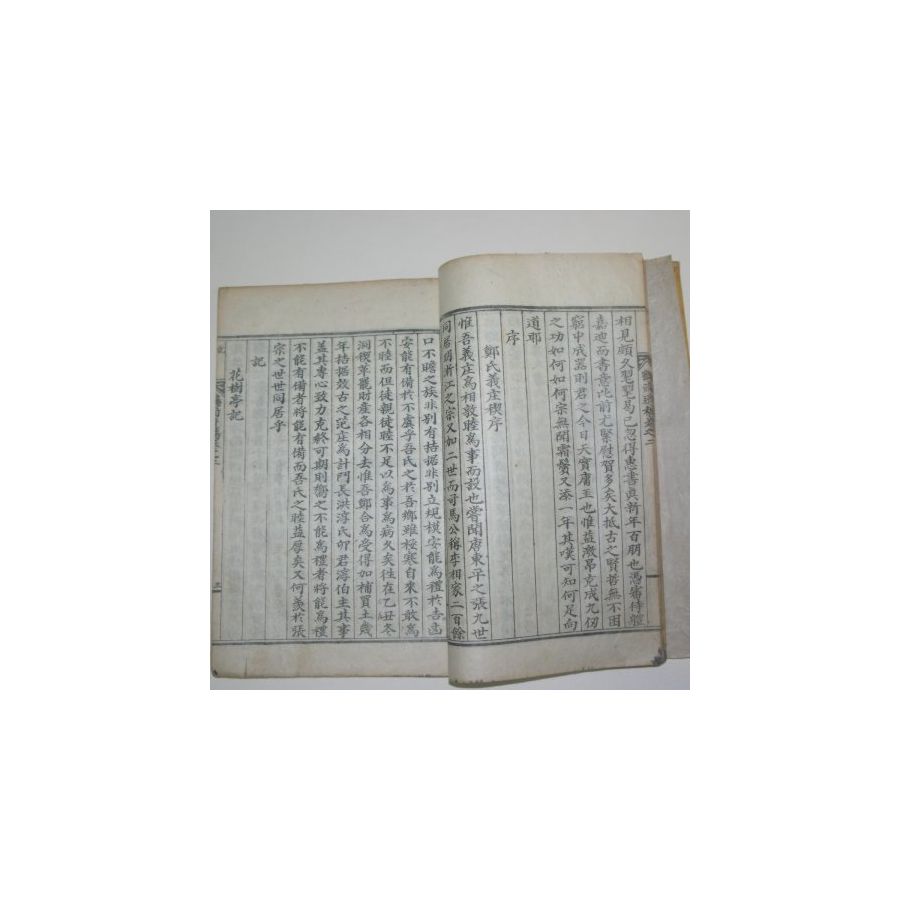 相見頗久習習易已忽得惠書與新年百朋也憑審侍體
嘉迪而書意比前尤緊慰賀多矣大抵古之賢哲無不困
窮中成器則君之今日天實庸玉也惟益激昂克成九仞
之功如何如何宗無聞霜鬢又添一年其嘆可知何足向
道耶
序
鄭氏義庄稧序
惟吾義庄爲相敦睦爲事而設也嘗聞唐東平之張九世
同居明浙江之宗又加二世而司馬公稱李相家二百餘
口不贍之族非別有拮据非別立規模安能爲禮於吉凶
安能有備於不虞乎吾氏之於吾鄉雖桵寒自來不敢爲
不睦而但徒親徒睦不足以爲事爲病久矣往在乙丑冬
洞稧革罷財產各相分去惟吾鄭合爲受得如補買土幾
年拮据效古之范庄爲計門長洪淳氏卯君淳伯主其事
蓋其專心致力克終可期則嚮之不能爲禮者將能爲禮
不能有備者將能有備而吾氏之睦益厚矣又何羨於張
宗之世世同居乎
記
花樹亭記